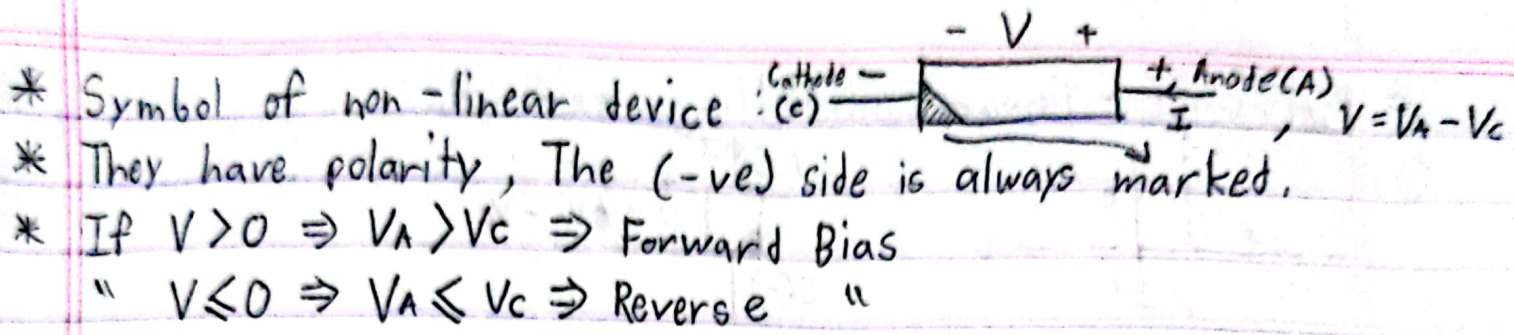 - V +
* Symbol of non-linear device : Cathode (c) - + Anode(A) I , V = VA - Vc
* They have polarity, The (-ve) side is always marked.
* If V > 0 ⇒ VA > Vc ⇒ Forward Bias
" V ≤ 0 ⇒ VA ≤ Vc ⇒ Reverse "